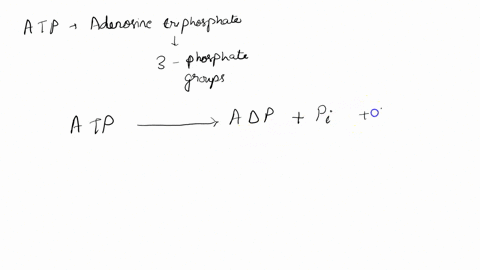 ATP → Adenosine triphosphate
↓
3 - phosphate
groups
ATP → ADP + Pi + 0.